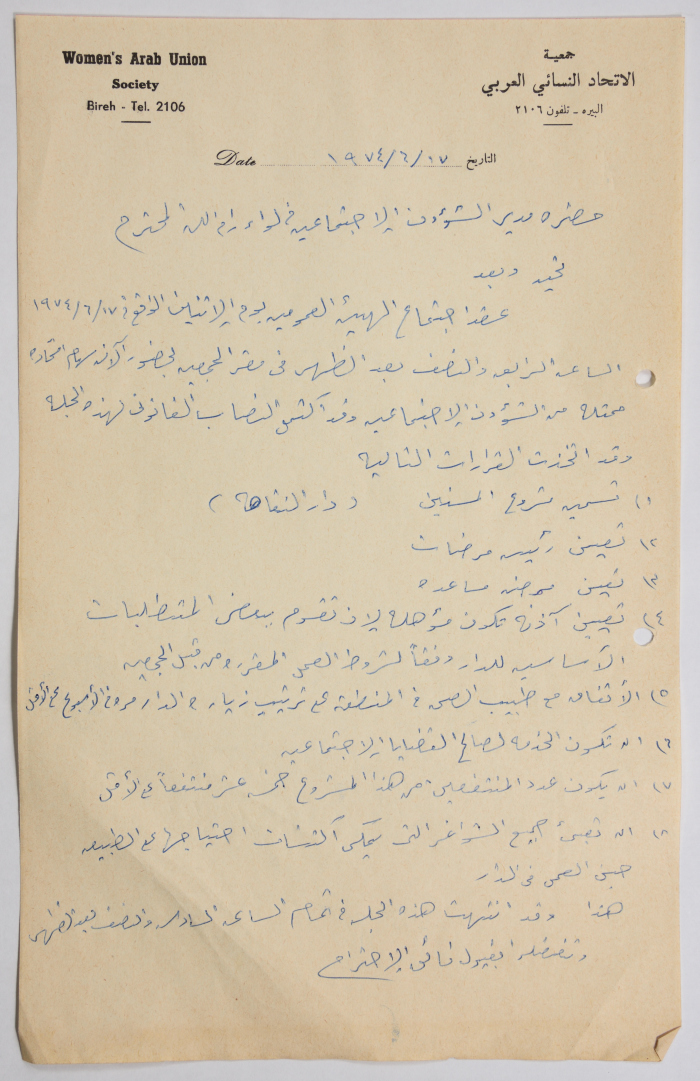 Women's Arab Union
Society
Bireh - Tel. 2106
جمعية
الاتحاد النسائي العربي
البيره ـ تلفون ٢١٠٦
Date ١٩٧٤/٦/١٧ التاريخ
حضره مدير الشؤون الاجتماعيه في لواء رام الله المحترم
تحيه وبعد
عقد اجتماع الهيئه العموميه يوم الاثنين الواقع في ١٩٧٤/٦/١٧
الساعه الرابعه والنصف بعد الظهر في مقر الجمعيه بحضور الآنسه سهام
ممثله من الشؤون الاجتماعيه وقد اكتمل النصاب القانوني لهذه الجلسه
وقد اتخذت القرارات التاليه
١) تسميه مشروع المسنين ( دار النقاهه )
٢) تعيين رئيسه ممرضات
٣) تعيين ممرضه مساعده
٤) تعيين آذنه تكون مؤهله لان تقوم ببعض المتطلبات
الأساسيه للدار وفقاً لشروط العمل المقرره من قبل الجمعيه
٥) الأتفاق مع طبيب الصحه في المنطقة على ترتيب زياره الدار مره في الأسبوع على الأقل
٦) ان تكون الخدمه لصالح القضايا الاجتماعيه
٧) ان يكون عدد المنتفعين من هذا المشروع خمسه عشر منتفعاً على الأقل
٨) ان تعبئ جميع الشواغر التي يمكن اكتشاف احتياجها على الطبيعه
حين العمل في الدار
هذا وقد انتهت هذه الجلسه في تمام الساعه السادسه والنصف بعد الظهر
وتفضلوا بقبول فائق الاحترام